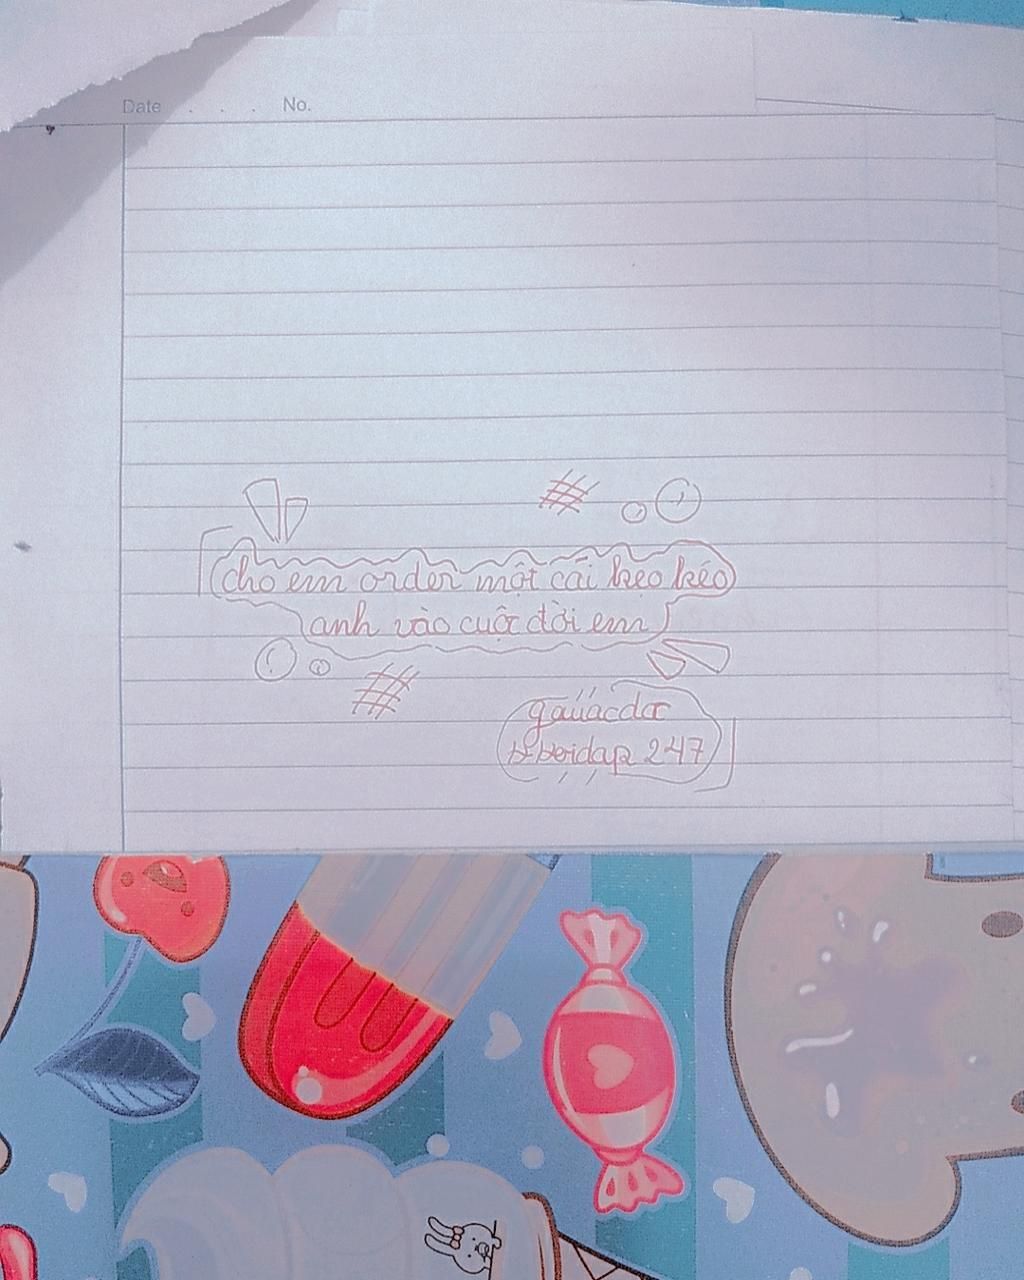 Date . . . No.
cho em order một cái kẹo kéo
anh vào cuộc đời em
gấuácdar
247